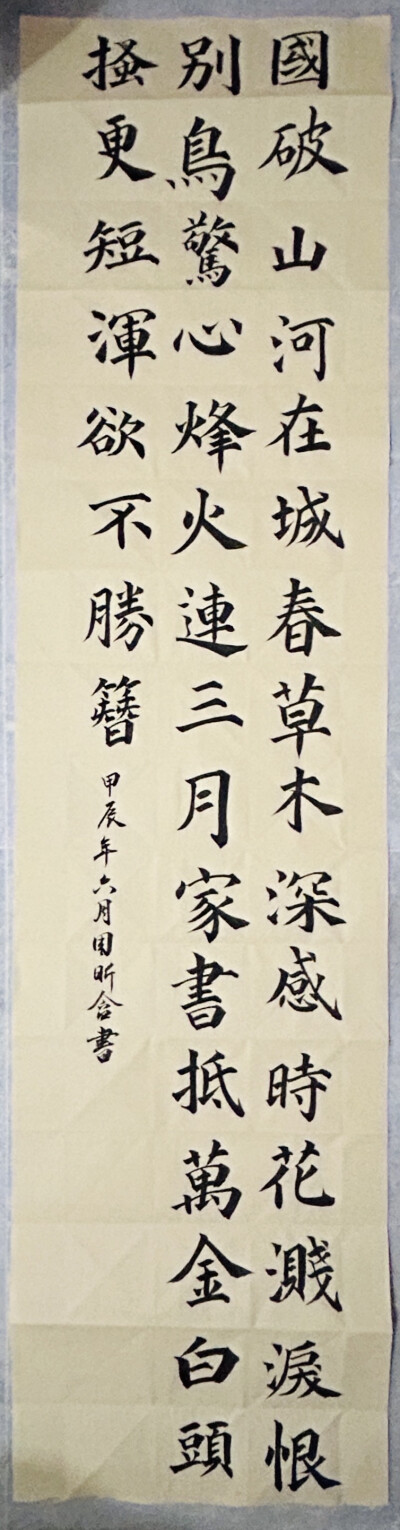 國破山河在城春草木深感時花濺淚恨
別鳥驚心烽火連三月家書抵萬金白頭
搔更短渾欲不勝簪
甲辰年六月周昕合書